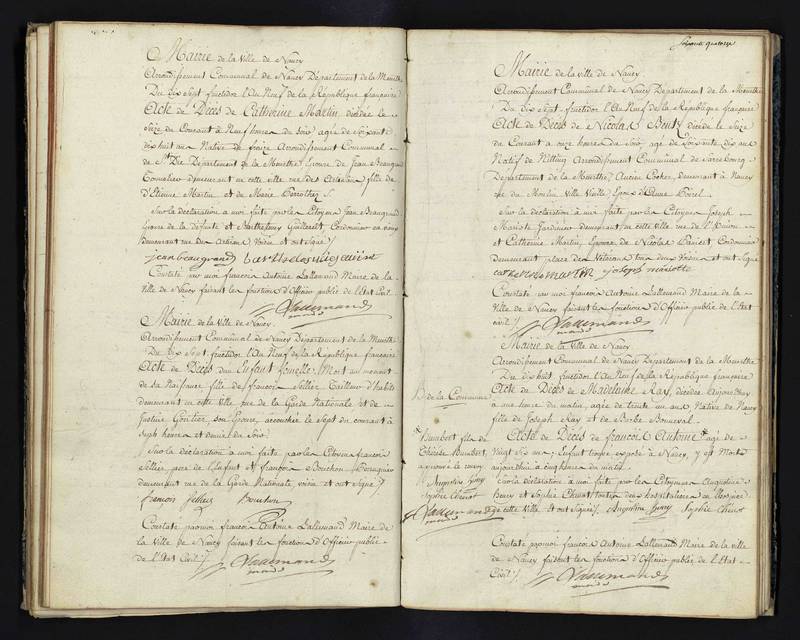 Mairie de la Ville de Nancy
Arrondissement Communal de Nancy Département de la Meurthe
Du dix Sept fructidor l'An Neuf de la République française
Acte de Décès de Catherine Martin décédée le
Seize du Courant à Neuf heures du Soir agée de Soixante
dix huit ans Native de Arrondissement Communal
de St Dié Département de la Meurthe Epouse de Jean Beaugrand
Tonnelier demeurant en cette ville rue des Artisans fille de
d'Etienne Martin et de Marie
Sur la déclaration à moi faite par les Citoyens Jean Beaugrand
Epoux de la défunte et Barthelemy Cordonnier
demeurant rue des Artisans Voisin et ont signé /
jean beaugrand
Constaté par moi françois Antoine Lallemand Maire de la
Ville de Nancy faisant les fonctions d'Officier public de l'Etat Civil
Lallemand
Mairie de la Ville de Nancy
Arrondissement Communal de Nancy Département de la Meurthe
Du dix Sept fructidor l'An Neuf de la République française
Acte de Décès d'un Enfant femelle Mort au moment
de sa Naissance fille de françois Sellier Tailleur d'habits
demeurant en cette Ville rue de la Garde Nationale et de
son Epouse, accouchée le Sept du courant à
Sept heures et demie du Soir
Sur la déclaration à moi faite par les Citoyens françois
Sellier père de l'Enfant et françois Bouchon Perruquier
demeurant rue de la Garde Nationale voisin et ont signé /
françois Sellier Bouchon
Constaté par moi françois Antoine Lallemand Maire de
la Ville de Nancy faisant les fonctions d'Officier public
de l'Etat Civil /
Lallemand
Soixante quatorze
Mairie de la ville de Nancy
Arrondissement Communal de Nancy Département de la Meurthe
Du dix Sept fructidor l'An Neuf de la République française
Acte de Décès de Nicolas décédé le Seize
du Courant à onze heures du Soir agé de Soixante dix ans
Natif de Nitting Arrondissement Communal de Sarrebourg
Département de la Meurthe, Ancien Cocher, demeurant à Nancy
rue du Moulin Ville Vieille Epoux d'Anne
Sur la déclaration à moi faite par les Citoyens Joseph
Mariotte Jardinier demeurant en cette ville rue de l'Union
et Catherine Martin Epouse de Nicolas Cordonnier
demeurant place des Vétérans tous deux voisins et ont signé
catherine martin joseph mariotte
Constaté par moi françois Antoine Lallemand Maire de la
Ville de Nancy faisant les fonctions d'Officier public de l'Etat
civil /
Lallemand
Mairie de la Ville de Nancy
Arrondissement Communal de Nancy Département de la Meurthe
Du dix huit fructidor l'An Neuf de la République française
Acte de Décès de Madelaine Ray, décédée Aujourd'huy
à une heure du matin, agée de trente un ans Native de Nancy
fille de Joseph Ray et de Barbe Bonneval
de la Commune
Acte de Décès de françois Antoine agé de
Vingt Six ans Enfant trouvé exposé à Nancy, y est Mort
aujourd'hui à cinq heures du matin
Humbert fils de
Thérèse Humbert
approuvé le renvoi
Augustine
Sophie
Lallemand
Sur la déclaration à moi faite par les Citoyennes Augustine
et Sophie toutes deux hospitalières en l'hospice
de cette Ville et ont signé /. Augustine Sophie
Constaté par moi françois Antoine Lallemand Maire de la Ville
de Nancy faisant les fonctions d'Officier public de l'Etat
Civil /
Lallemand